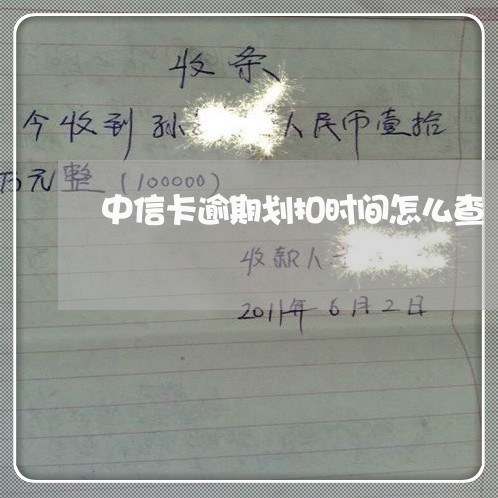 收条
今收到孙人民币壹拾
万元整(100000)
中信卡逾期划扣时间怎么查
收款人
2011年6月2日